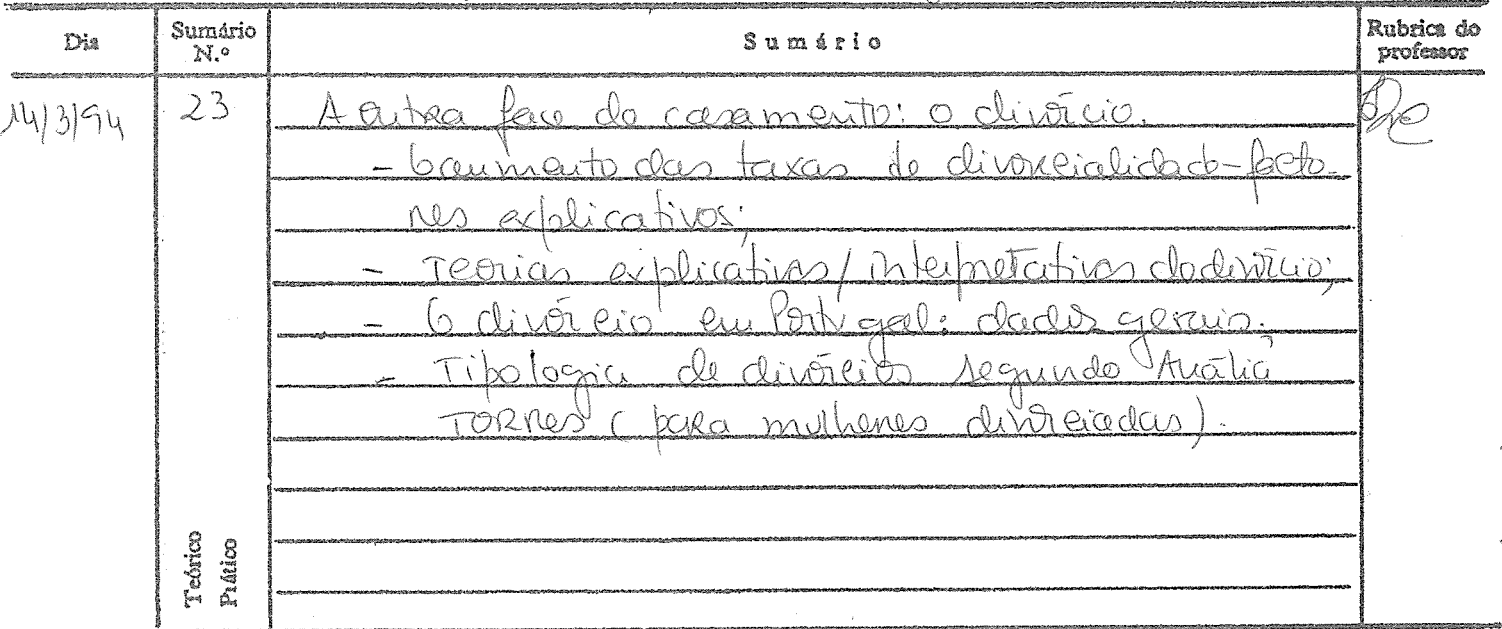 Dia
Sumário N.º
Sumário
Rubrica do professor
14/3/94
23
A outra face do casamento: o divórcio.
- O aumento das taxas de divorcialidade - facto-
res explicativos;
- Teorias explicativas / interpretativas do divórcio;
- O divórcio em Portugal: dados gerais.
- Tipologia de divórcios segundo Anália
TORRES (para mulheres divorciadas).
Teórico
Prático